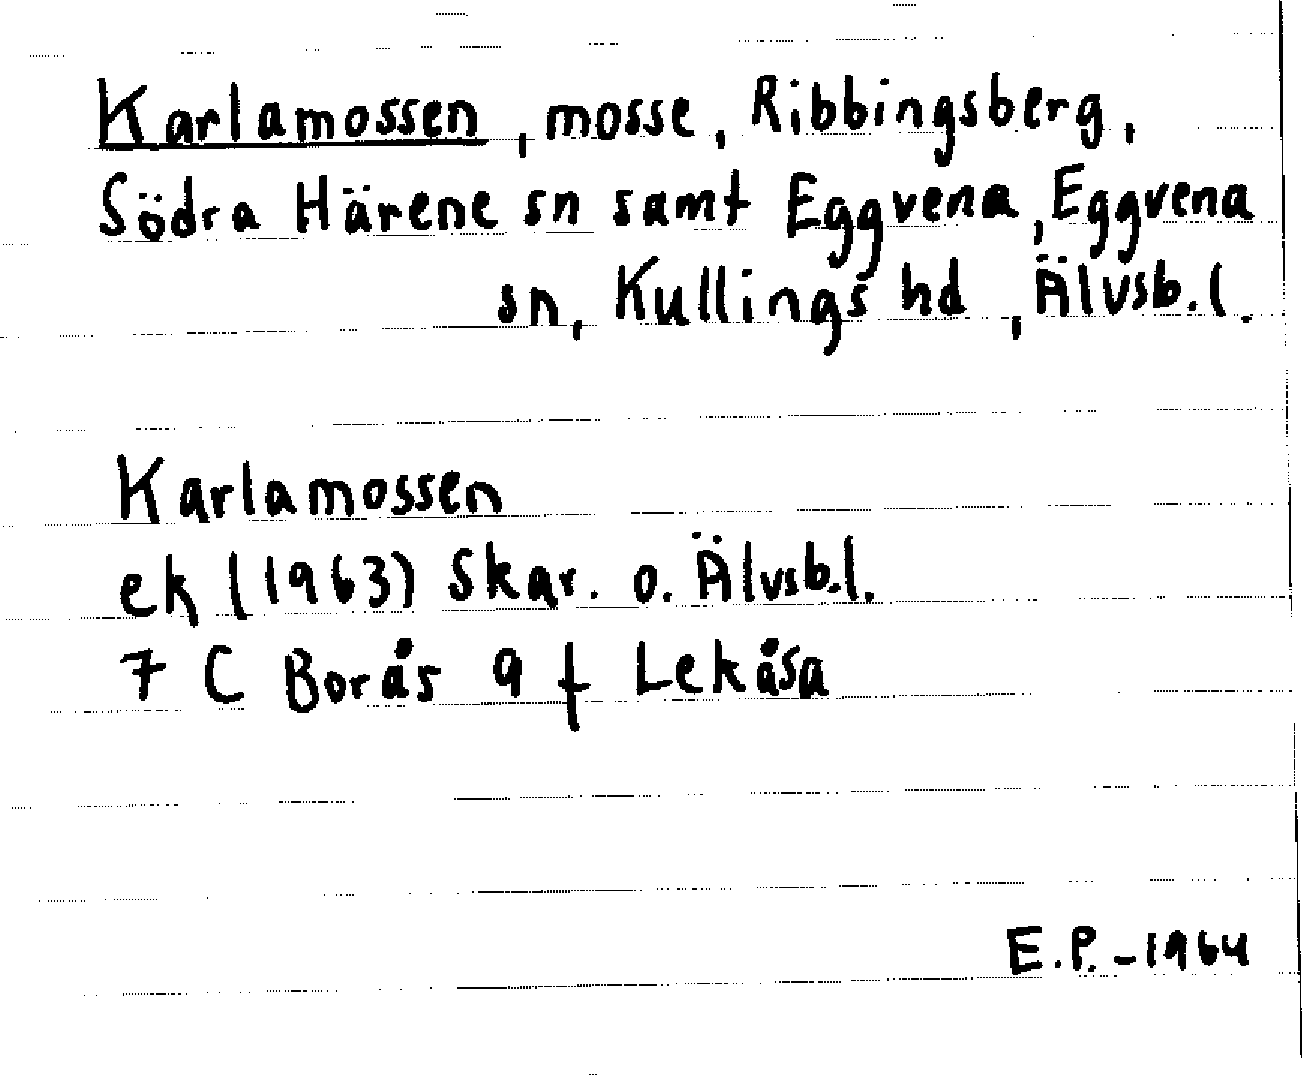 Karlamossen, mosse, Ribbingsberg,
Södra Härene sn samt Eggvena, Eggvena
sn, Kullings hd, Älvsb.l.
Karlamossen
ek (1963) Skar. o. Älvsb.l.
7 C Borås 9 f Lekåsa
E.P. -1964